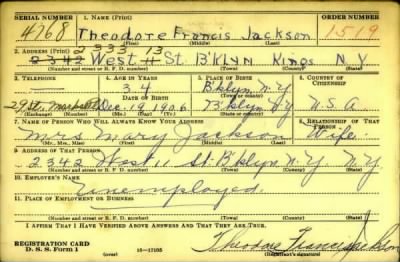 SERIAL NUMBER 1. NAME (Print) ORDER NUMBER
4768 Theodore Francis Jackson 1519
(First) (Middle) (Last)
2. ADDRESS (Print) 2333 13
2342 West 11 St B'KLYN Kings N Y
(Number and street or R. F. D. number) (Town) (County) (State)
3. TELEPHONE 4. AGE IN YEARS 5. PLACE OF BIRTH 6. COUNTRY OF CITIZENSHIP
— 34 Bklyn N.Y
DATE OF BIRTH (Town or county)
Dec. 19 1906 B'klyn N.Y U.S.A
(Exchange) (Number) (Mo.) (Day) (Yr.) (State or country)
7. NAME OF PERSON WHO WILL ALWAYS KNOW YOUR ADDRESS 8. RELATIONSHIP OF THAT PERSON
Mrs Mary Jackson Wife.
(Mr., Mrs., Miss) (First) (Middle) (Last)
9. ADDRESS OF THAT PERSON
2342 West 11 St. B'klyn N.Y N.Y
(Number and street or R. F. D. number) (Town) (County) (State)
10. EMPLOYER'S NAME
Unemployed.
11. PLACE OF EMPLOYMENT OR BUSINESS
(Number and street or R. F. D. number) (Town) (County) (State)
I AFFIRM THAT I HAVE VERIFIED ABOVE ANSWERS AND THAT THEY ARE TRUE.
REGISTRATION CARD
D. S. S. Form 1 (over) 16—17105 Theodore Francis Jackson